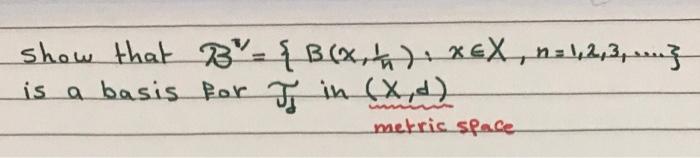 show that 𝓑'' = { B(x, 1/n) : x ∈ X , n = 1,2,3, .... }
is a basis for 𝒯_d in (X,d)
metric space